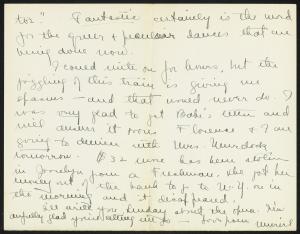 too?" Fantastic certainly is the word
for the queer & peculiar dances that are
being done now.
I could write on for hours, but the
joggling of this train is giving me
spasms — and that would never do. I
was very glad to get Bobi's letter and
will answer it soon. Florence & I are
going to dinner with Mrs. Murdock
tomorrow. $32 more has been stolen
in Joralyn from a Freshman. She got her
money out of the bank to go to N.Y. on in
the morning and it disappeared.
Will write you Sunday about the opera. I'm
awfully glad you're letting me go — Love from Muriel